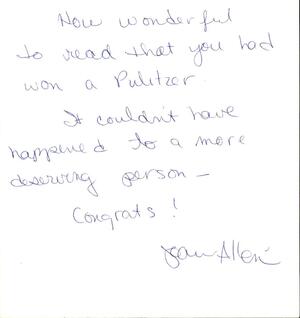 How wonderful
to read that you had
won a Pulitzer.
It couldn't have
happened to a more
deserving person –
Congrats!
Jean Allen